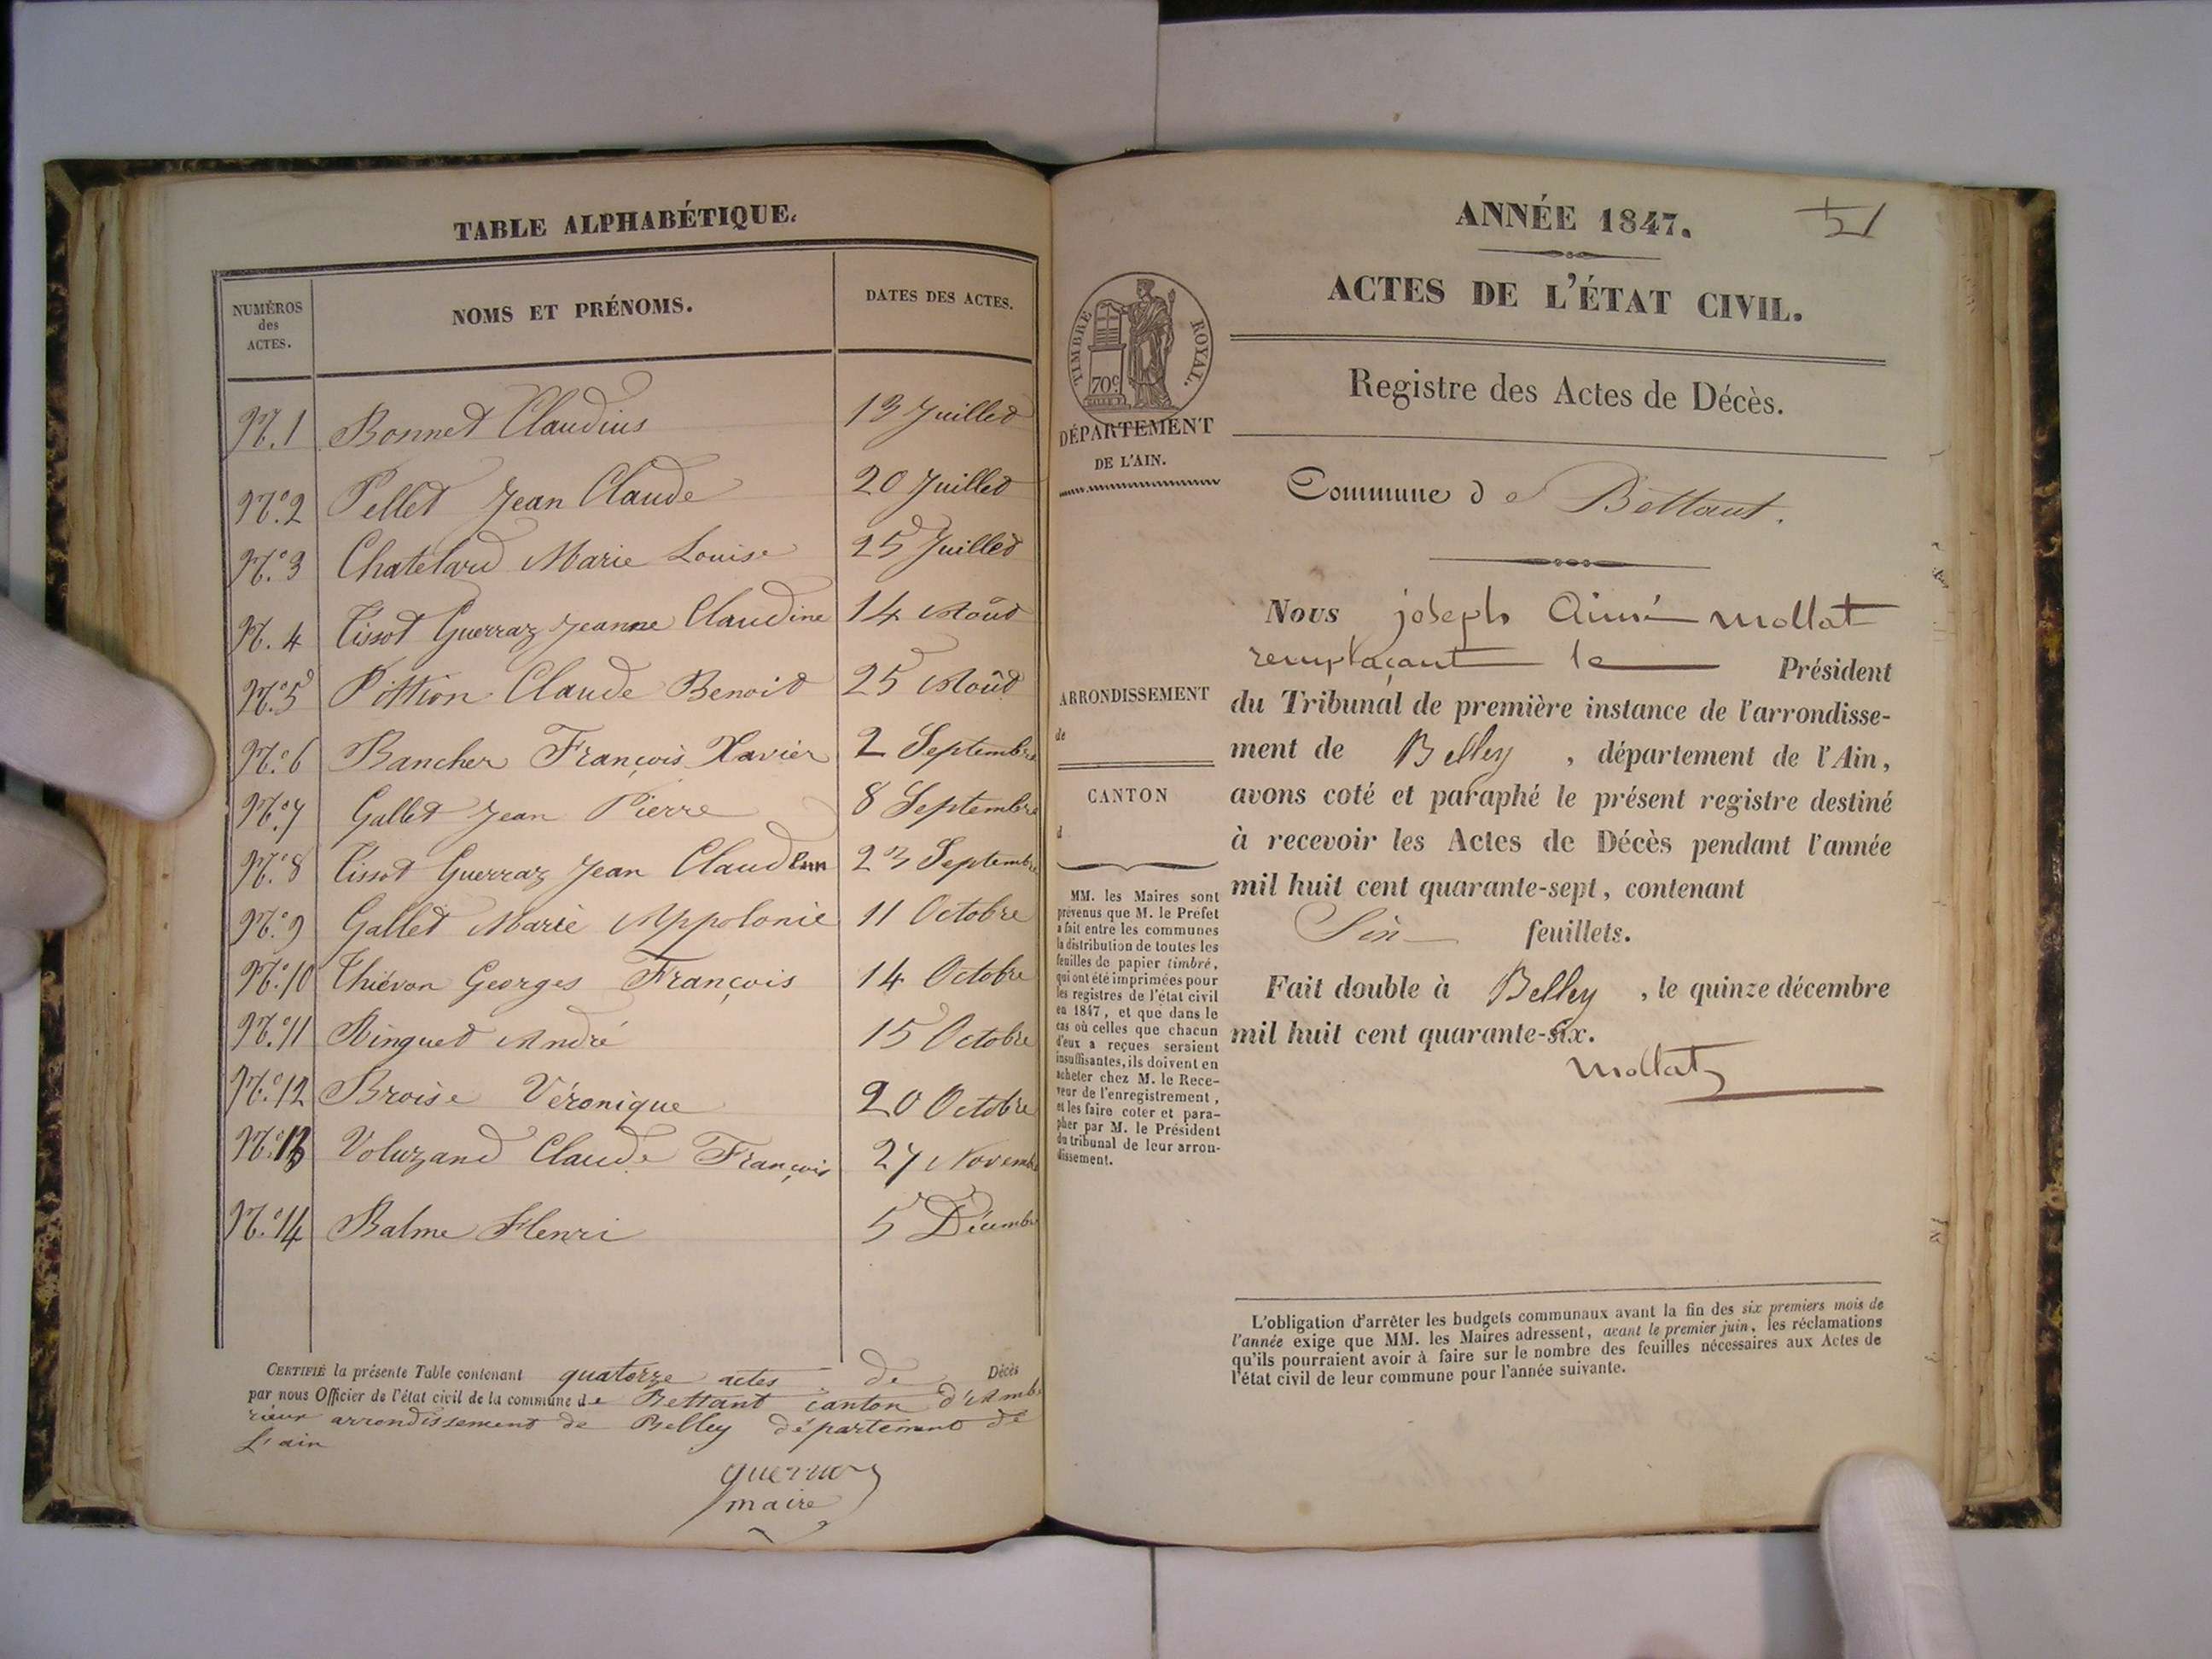 TABLE ALPHABÉTIQUE.
NUMÉROS
des
ACTES.
NOMS ET PRÉNOMS.
DATES DES ACTES.
N°.1 Bonnet Claudius 13 Juillet
N°.2 Pellet Jean Claude 20 Juillet
N°.3 Chatelard Marie Louise 25 Juillet
N°.4 Tissot Guerraz Jeanne Claudine 14 Août
N°.5 Pittion Claude Benoit 25 Août
N°.6 Bancher François Xavier 2 Septembre
N°.7 Gallet Jean Pierre 8 Septembre
N°.8 Tissot Guerraz Jean 23 Septembre
N°.9 Gallet Marie Appolonie 11 Octobre
N°.10 Thiévon Georges François 14 Octobre
N°.11 Ringuet André 15 Octobre
N°.12 Broise Véronique 20 Octobre
N°.13 Voluzand Claude François 27 Novemb
N°.14 Balme Henri 5 Décembre
CERTIFIÉ la présente Table contenant quatorze actes de Décès
par nous Officier de l'état civil de la commune de Bettant canton d'Ambé
rieux arrondissement de Belley département de
L'ain
maire
ANNÉE 1847.
ACTES DE L'ÉTAT CIVIL.
TIMBRE ROYAL.
70c
DÉPARTEMENT
DE L'AIN.
Registre des Actes de Décès.
Commune de Bettant.
Nous joseph Aimé mollat
remplaçant le Président
du Tribunal de première instance de l'arrondisse-
ment de Belley, département de l'Ain,
avons coté et paraphé le présent registre destiné
à recevoir les Actes de Décès pendant l'année
mil huit cent quarante-sept, contenant
Six feuillets.
Fait double à Belley, le quinze décembre
mil huit cent quarante-six.
mollat
ARRONDISSEMENT
de
CANTON
d
MM. les Maires sont
prévenus que M. le Préfet
a fait entre les communes
la distribution de toutes les
feuilles de papier timbré,
qui ont été imprimées pour
les registres de l'état civil
en 1847, et que dans le
cas où celles que chacun
d'eux a reçues seraient
insuffisantes, ils doivent en
acheter chez M. le Rece-
veur de l'enregistrement,
et les faire coter et para-
pher par M. le Président
du tribunal de leur arron-
dissement.
L'obligation d'arrêter les budgets communaux avant la fin des six premiers mois de
l'année exige que MM. les Maires adressent, avant le premier juin, les réclamations
qu'ils pourraient avoir à faire sur le nombre des feuilles nécessaires aux Actes de
l'état civil de leur commune pour l'année suivante.